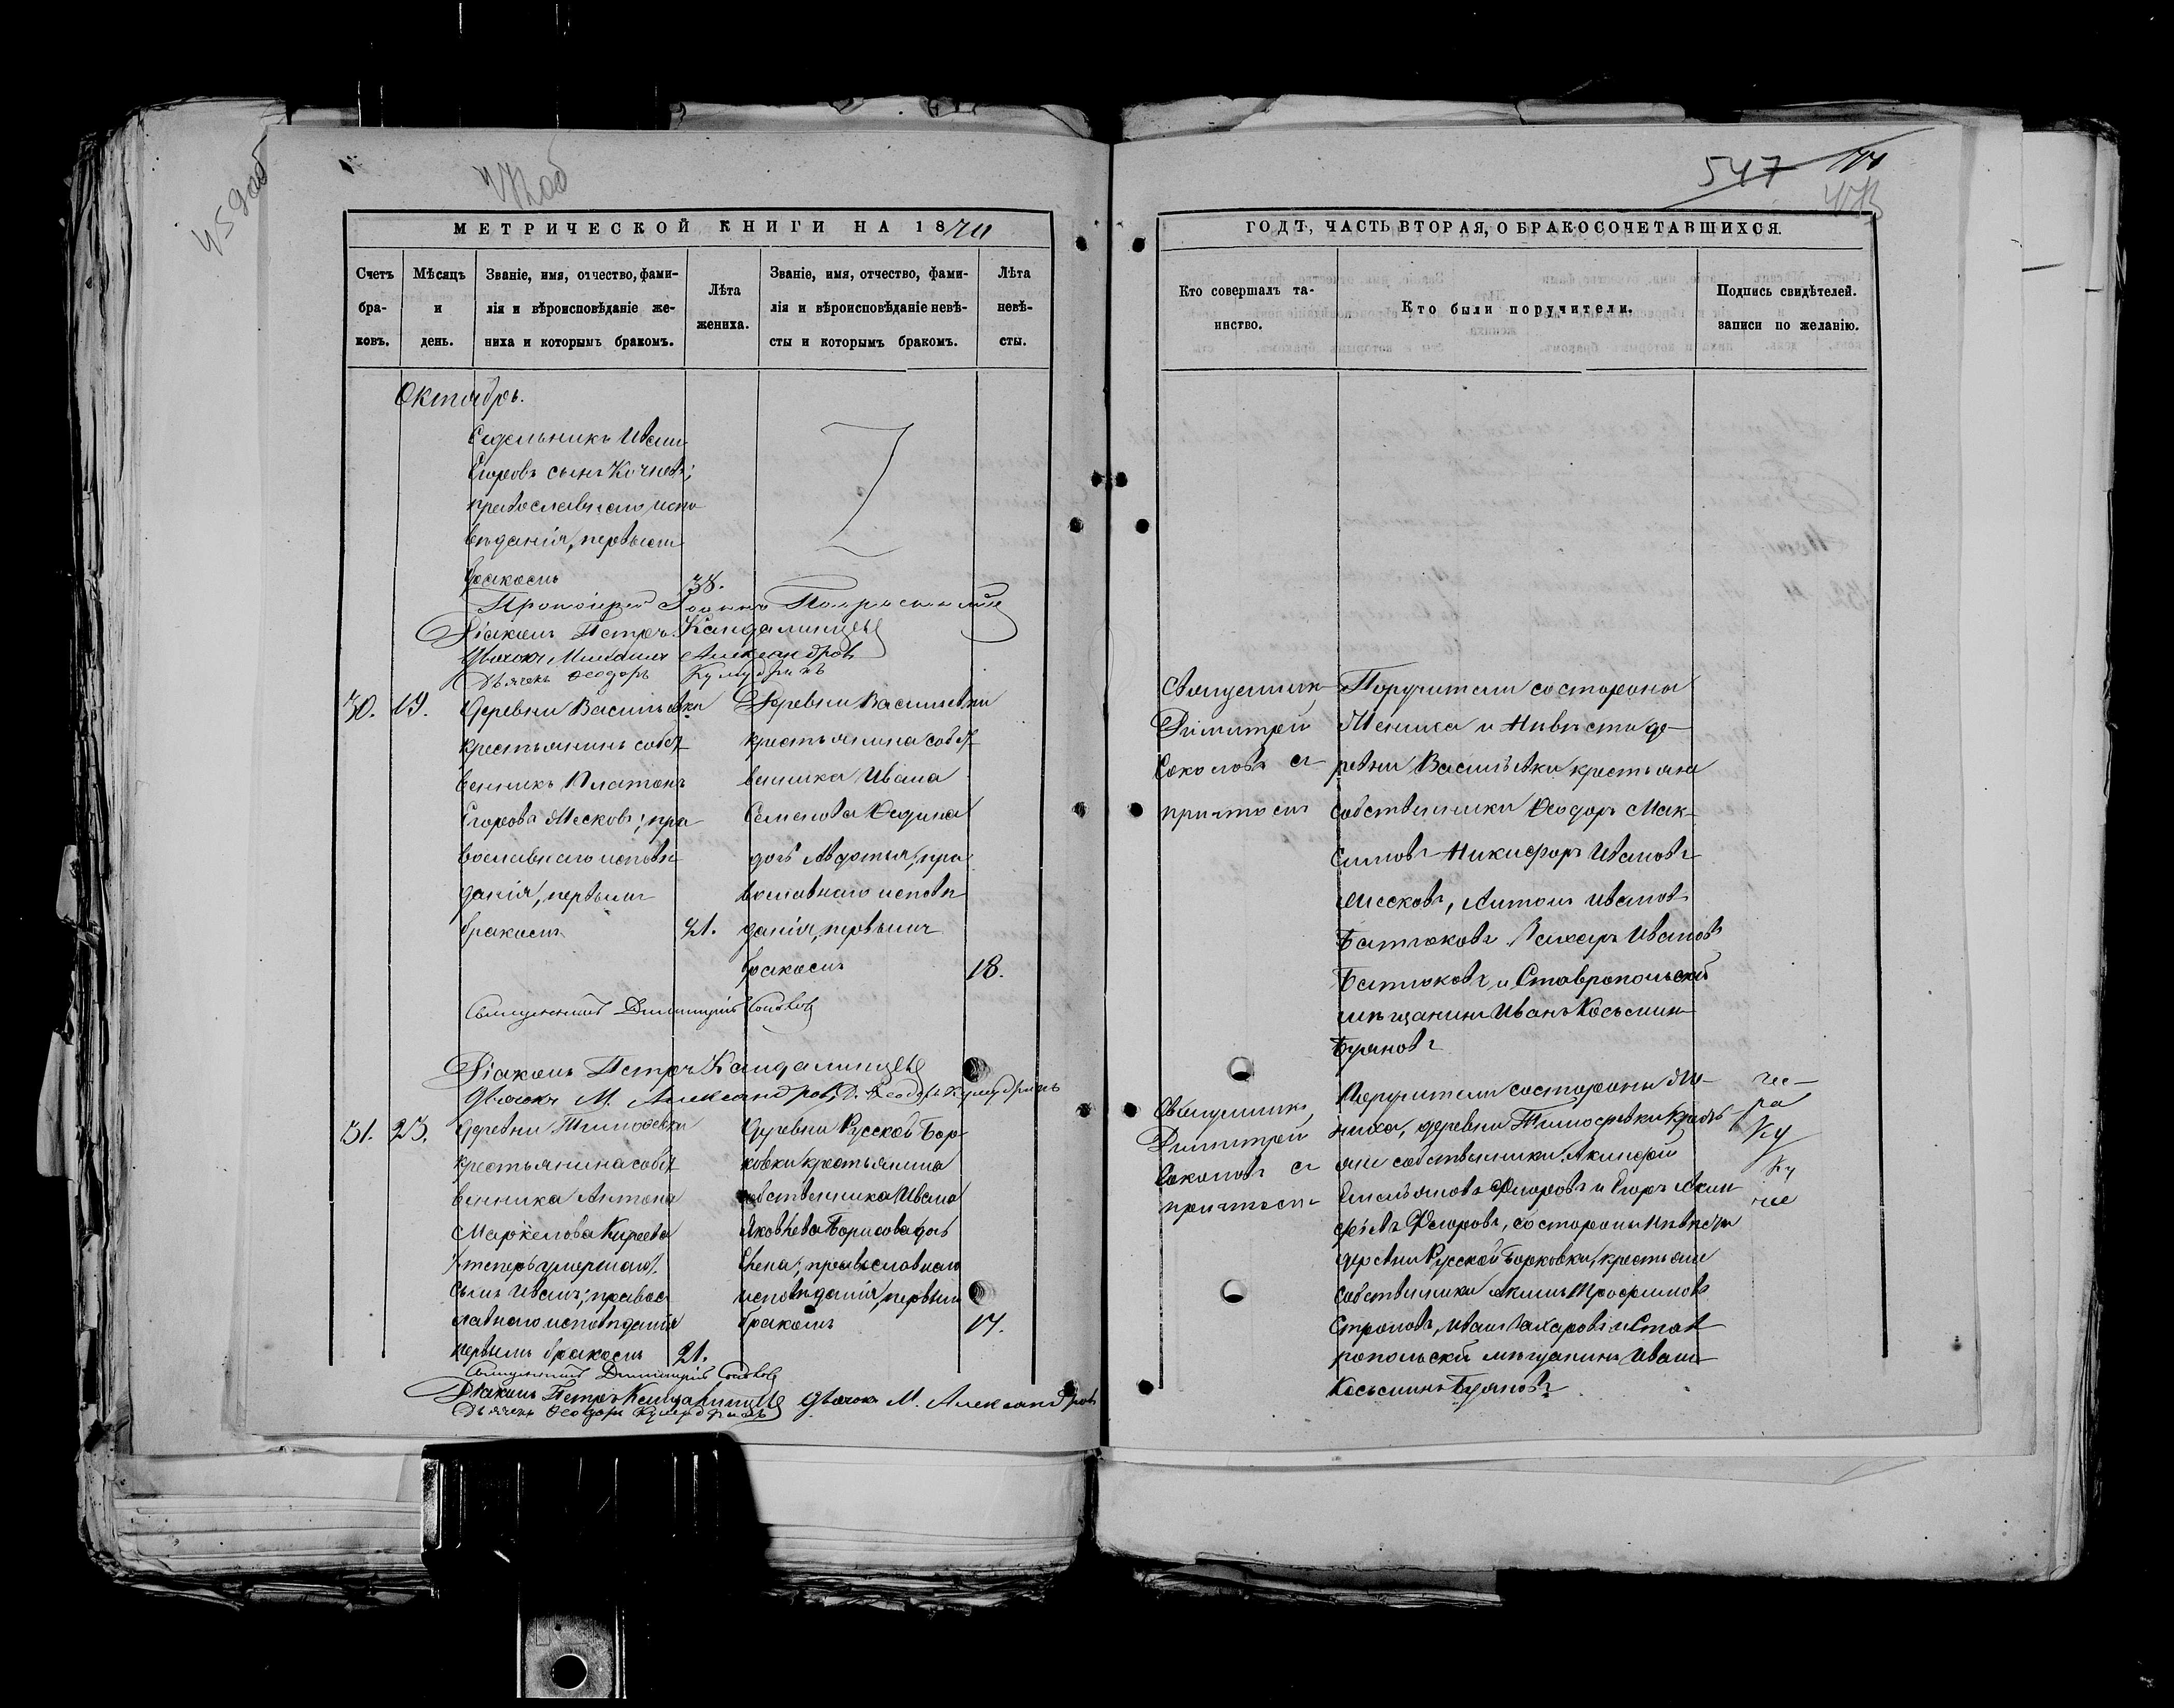 547
МЕТРИЧЕСКОЙ КНИГИ НА 18
Счетъ бра-ковъ.
Мѣсяцъ и день.
Званіе, имя, отчество, фами-
лія и вѣроисповѣданіе же-
ниха и которымъ бракомъ.
Лѣта жениха.
Званіе, имя, отчество, фами-
лія и вѣроисповѣданіе невѣ-
сты и которымъ бракомъ.
Лѣта невѣ-сты.
Октябрь.
Иванъ
Егоровъ сынъ Кочневъ;
православнаго испо
вѣданія, первымъ
бракомъ 38.
Протоіерей Іоаннъ
Діаконъ Петръ
Михаилъ Александровъ
Дьячекъ Ѳеодоръ
30. 19.
Деревни Васильевки
крестьянинъ собст
венникъ Платонъ
Егоровъ Месковъ; пра
вославнаго исповѣ
данія, первымъ
бракомъ 21.
Деревни Васильевки
крестьянина собст
венника Ивана
Семенова Юдина
дочь Авдотья, пра
вославнаго исповѣ
данія, первымъ
бракомъ 18.
Священникъ Димитрій Соколовъ
Діаконъ Петръ
М. Александровъ, Д. Ѳеодоръ
31. 23.
Деревни Тимофѣевки
крестьянина собст
венника Антона
Маркелова Киреева
теперь умершаго,
сынъ Иванъ; правос
лавнаго исповѣданія
первымъ бракомъ 21.
Деревни Русской Бор
ковки крестьянина
собственника Ивана
Яковлева Борисова дочь
Елена; православнаго
исповѣданія, первымъ
бракомъ 17.
Священникъ Димитрій Соколовъ
Діаконъ Петръ М. Александровъ
Дьячекъ Ѳеодоръ
ГОДЪ, ЧАСТЬ ВТОРАЯ, О БРАКОСОЧЕТАВШИХСЯ.
Кто совершалъ та-
инство.
Кто были поручители.
Подпись свидѣтелей.
записи по желанію.
Священникъ
Димитрей
Соколовъ съ
притчомъ
Поручители со стороны
Жениха и Невѣсты де-
ревни Васильевки крестьяне
собственники Ѳеодоръ Мак-
симовъ Никифоръ Ивановъ
Месковъ, Антонъ Ивановъ
Батяковъ Захаръ Ивановъ
Батяковъ и Ставропольской
мѣщанинъ Иванъ Косьминъ
Буяновъ
Священникъ
Димитрей
Соколовъ съ
притчомъ
Поручители со стороны Же-
ниха, деревни Тимофѣевки крест
яне собственники Акинфей
Емельяновъ Ѳедоровъ и Егоръ Акин
фѣевъ Ѳедоровъ, со стороны Невѣсты
деревни Русской Борковки, крестьяне
собственники Акимъ Трофимовъ
Строповъ, Иванъ Захаровъ и Став
ропольскій мѣщанинъ Иванъ
Косьминъ Буяновъ